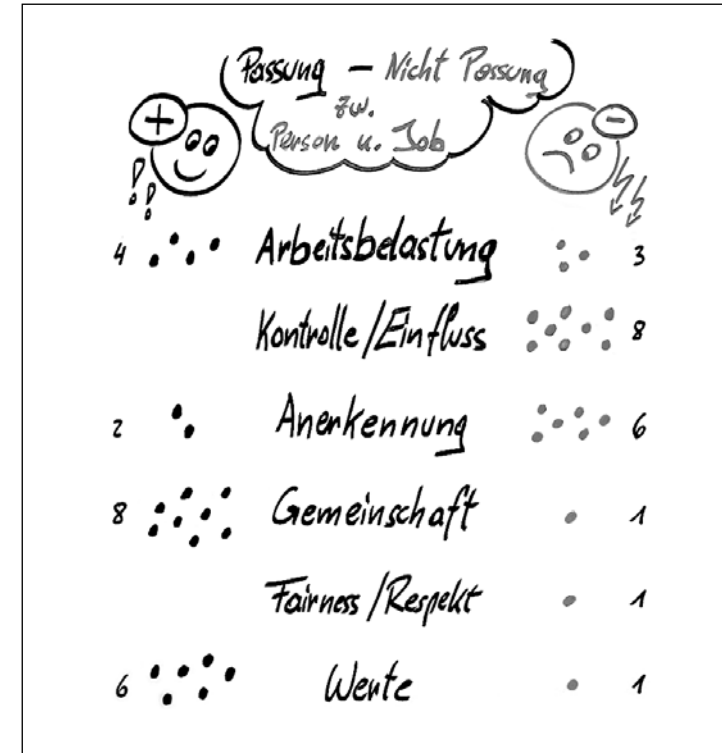 Passung – Nicht Passung
zw.
Person u. Job
+ −
4 Arbeitsbelastung 3
Kontrolle/Einfluss 8
2 Anerkennung 6
8 Gemeinschaft 1
Fairness/Respekt 1
6 Werte 1